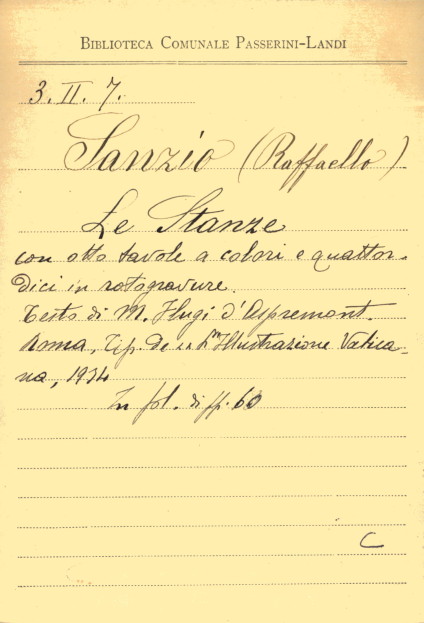 BIBLIOTECA COMUNALE PASSERINI-LANDI
3. II. 7.
Sanzio (Raffaello)
Le Stanze
con otto tavole a colori e quattor-
dici in rotogravure.
Testo di M. Flugi d'Aspremont.
Roma, Tip. de "L'Illustrazione Vatica-
na, 1934
In fol. di pp. 60
C